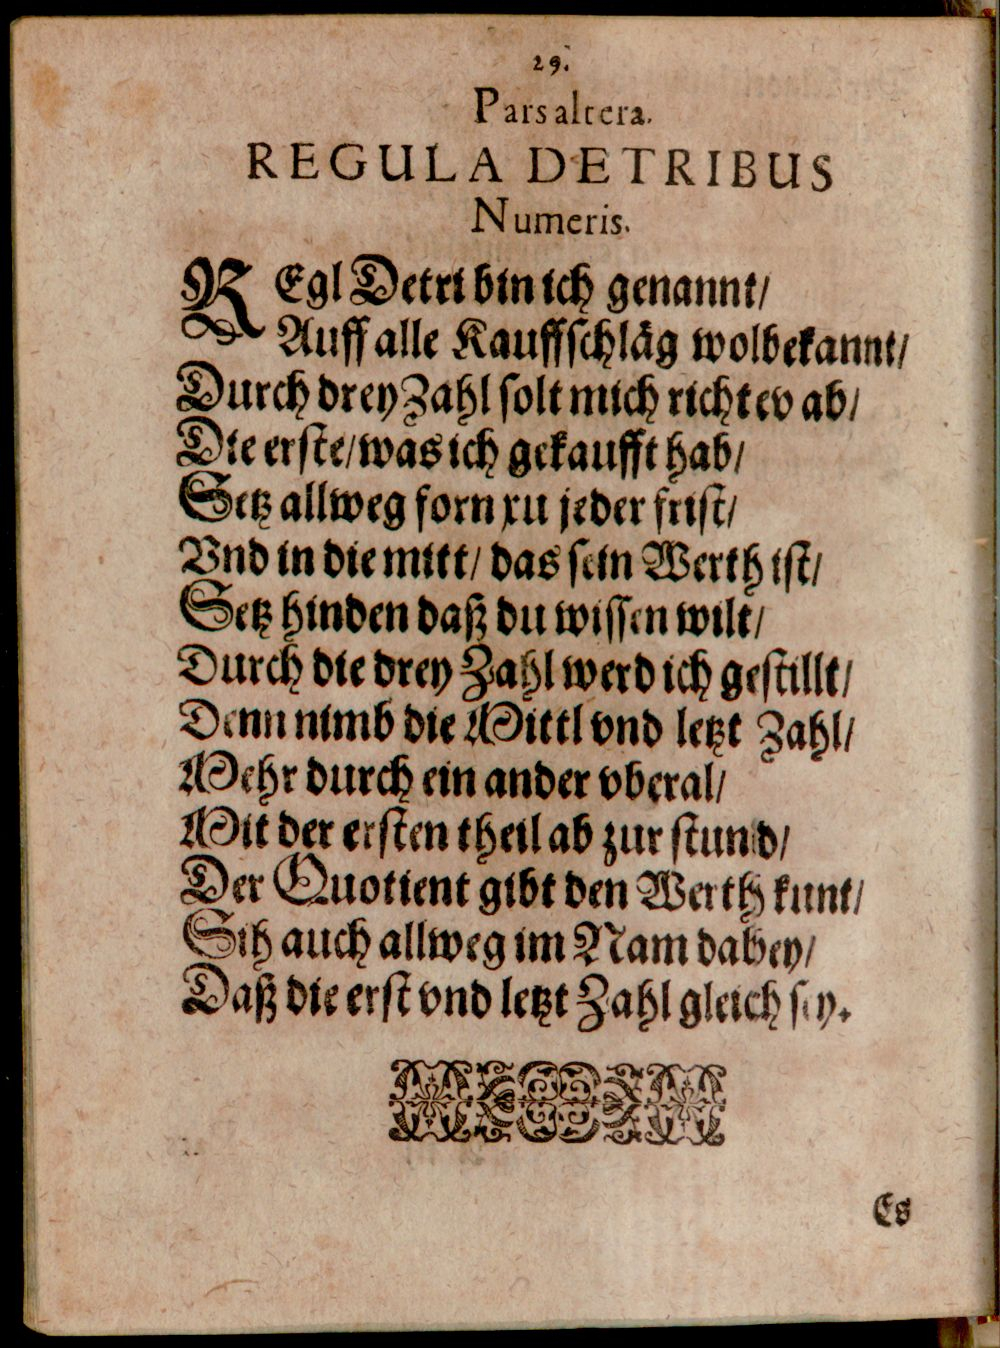 29.
Pars altera.
REGULA DETRIBUS
Numeris.
REgl Detri bin ich genannt/
Auff alle Kauffschläg wolbekannt/
Durch drey Zahl solt mich richt ev ab/
Die erste/ was ich gekaufft hab/
Setz allweg forn xu jeder frist/
Vnd in die mitt/ das sein Werth ist/
Setz hinden daß du wissen wilt/
Durch die drey Zahl werd ich gestillt/
Denn nimb die Mittl vnd letzt Zahl/
Mehr durch ein ander vberal/
Mit der ersten theil ab zur stund/
Der Quotient gibt den Werth kunt/
Sih auch allweg im Nam dabey/
Daß die erst vnd letzt Zahl gleich sey.
Es